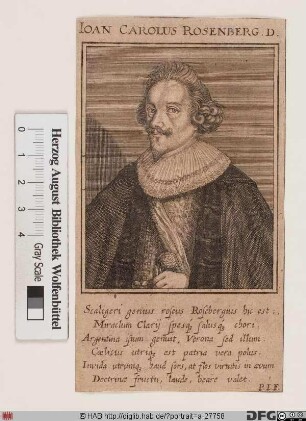 IOAN CAROLUS ROSENBERG. D.
Scaligeri genius roseus Rosbergius hic est,
Miraclum Clarij spesq, salusq, chori.
Argentina istum genuit, Verona sed illum
Cælitus utriq, est patria vera polus.
Invida utrumq, haud fors, at flos virtutis in ævum
Doctrinæ fructu, laude, beare valet.
P.I.F.
Herzog August Bibliothek Wolfenbüttel
Gray Scale
0 1 2 3 4
© HAB http://diglib.hab.de/?portrait=a-27758
DFG